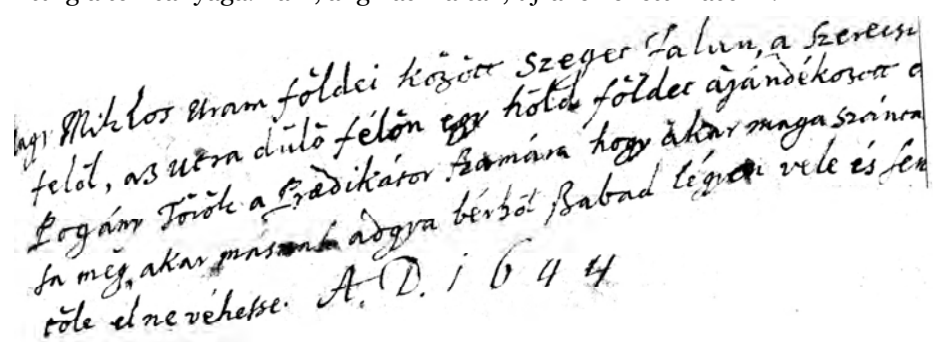 Nagy Miklos Uram földei között Szeget falun, a szerecsi
felöl, az utra dülö félön egy hóld földet àjándékozott
Pogány Török a Prædikátor számára hogy àkar maga szánca
sa még, akar másnak adgya bérböl szabad légyen vele és sen
töle el ne véhesse. A. D. 1644